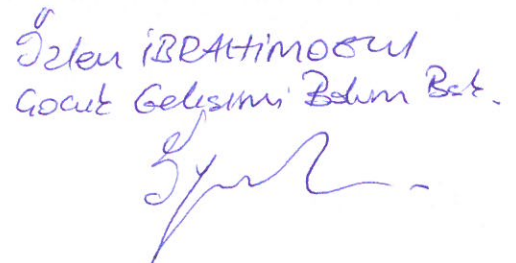 Özlen İBRAHİMOĞLU
Çocuk Gelişimi Bölüm Bşk.